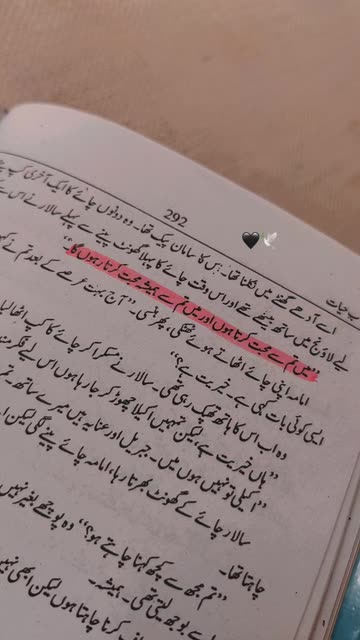 292
ب حیات
اے آدھے گھنٹے میں نکلنا تھا۔ اس کا سامان پیک تھا۔ وہ دونوں چائے کا ایک آخری کپ پینے
لیے لاؤنج میں ساتھ بیٹھے تھے اور اس وقت چائے کا پہلا گھونٹ پینے سے پہلے سالار نے اس سے
"میں تم سے محبت کرتا ہوں اور میں تم سے ہمیشہ محبت کرتا رہوں گا"
امامہ اپنی چائے اٹھاتے ہوئے ٹھٹکی، پھر ہنسی۔ "آج بہت عرصے کے بعد تم نے کہیں
ایسی کوئی بات کہی ہے۔ خیریت ہے؟"
وہ اب اس کا ہاتھ تھپک رہی تھی۔ سالار نے مسکرا کر چائے کا کپ اٹھالیا
"ہاں خیریت ہے، لیکن تمہیں اکیلا چھوڑ کر جا رہا ہوں اس لیے فکر
"اکیلی تو نہیں ہوں میں۔ جبریل اور عنایہ ہیں میرے ساتھ۔ تم
سالار چائے کے گھونٹ بھرتا رہا، امامہ چائے پینے لگی لیکن
چاہتا تھا۔
"تم مجھ سے کچھ کہنا چاہتے ہو؟" وہ پوچھے بغیر نہیں
پوچھ لیتی تھی۔ ہمیشہ۔
کرنا چاہتا ہوں لیکن ابھی نہیں